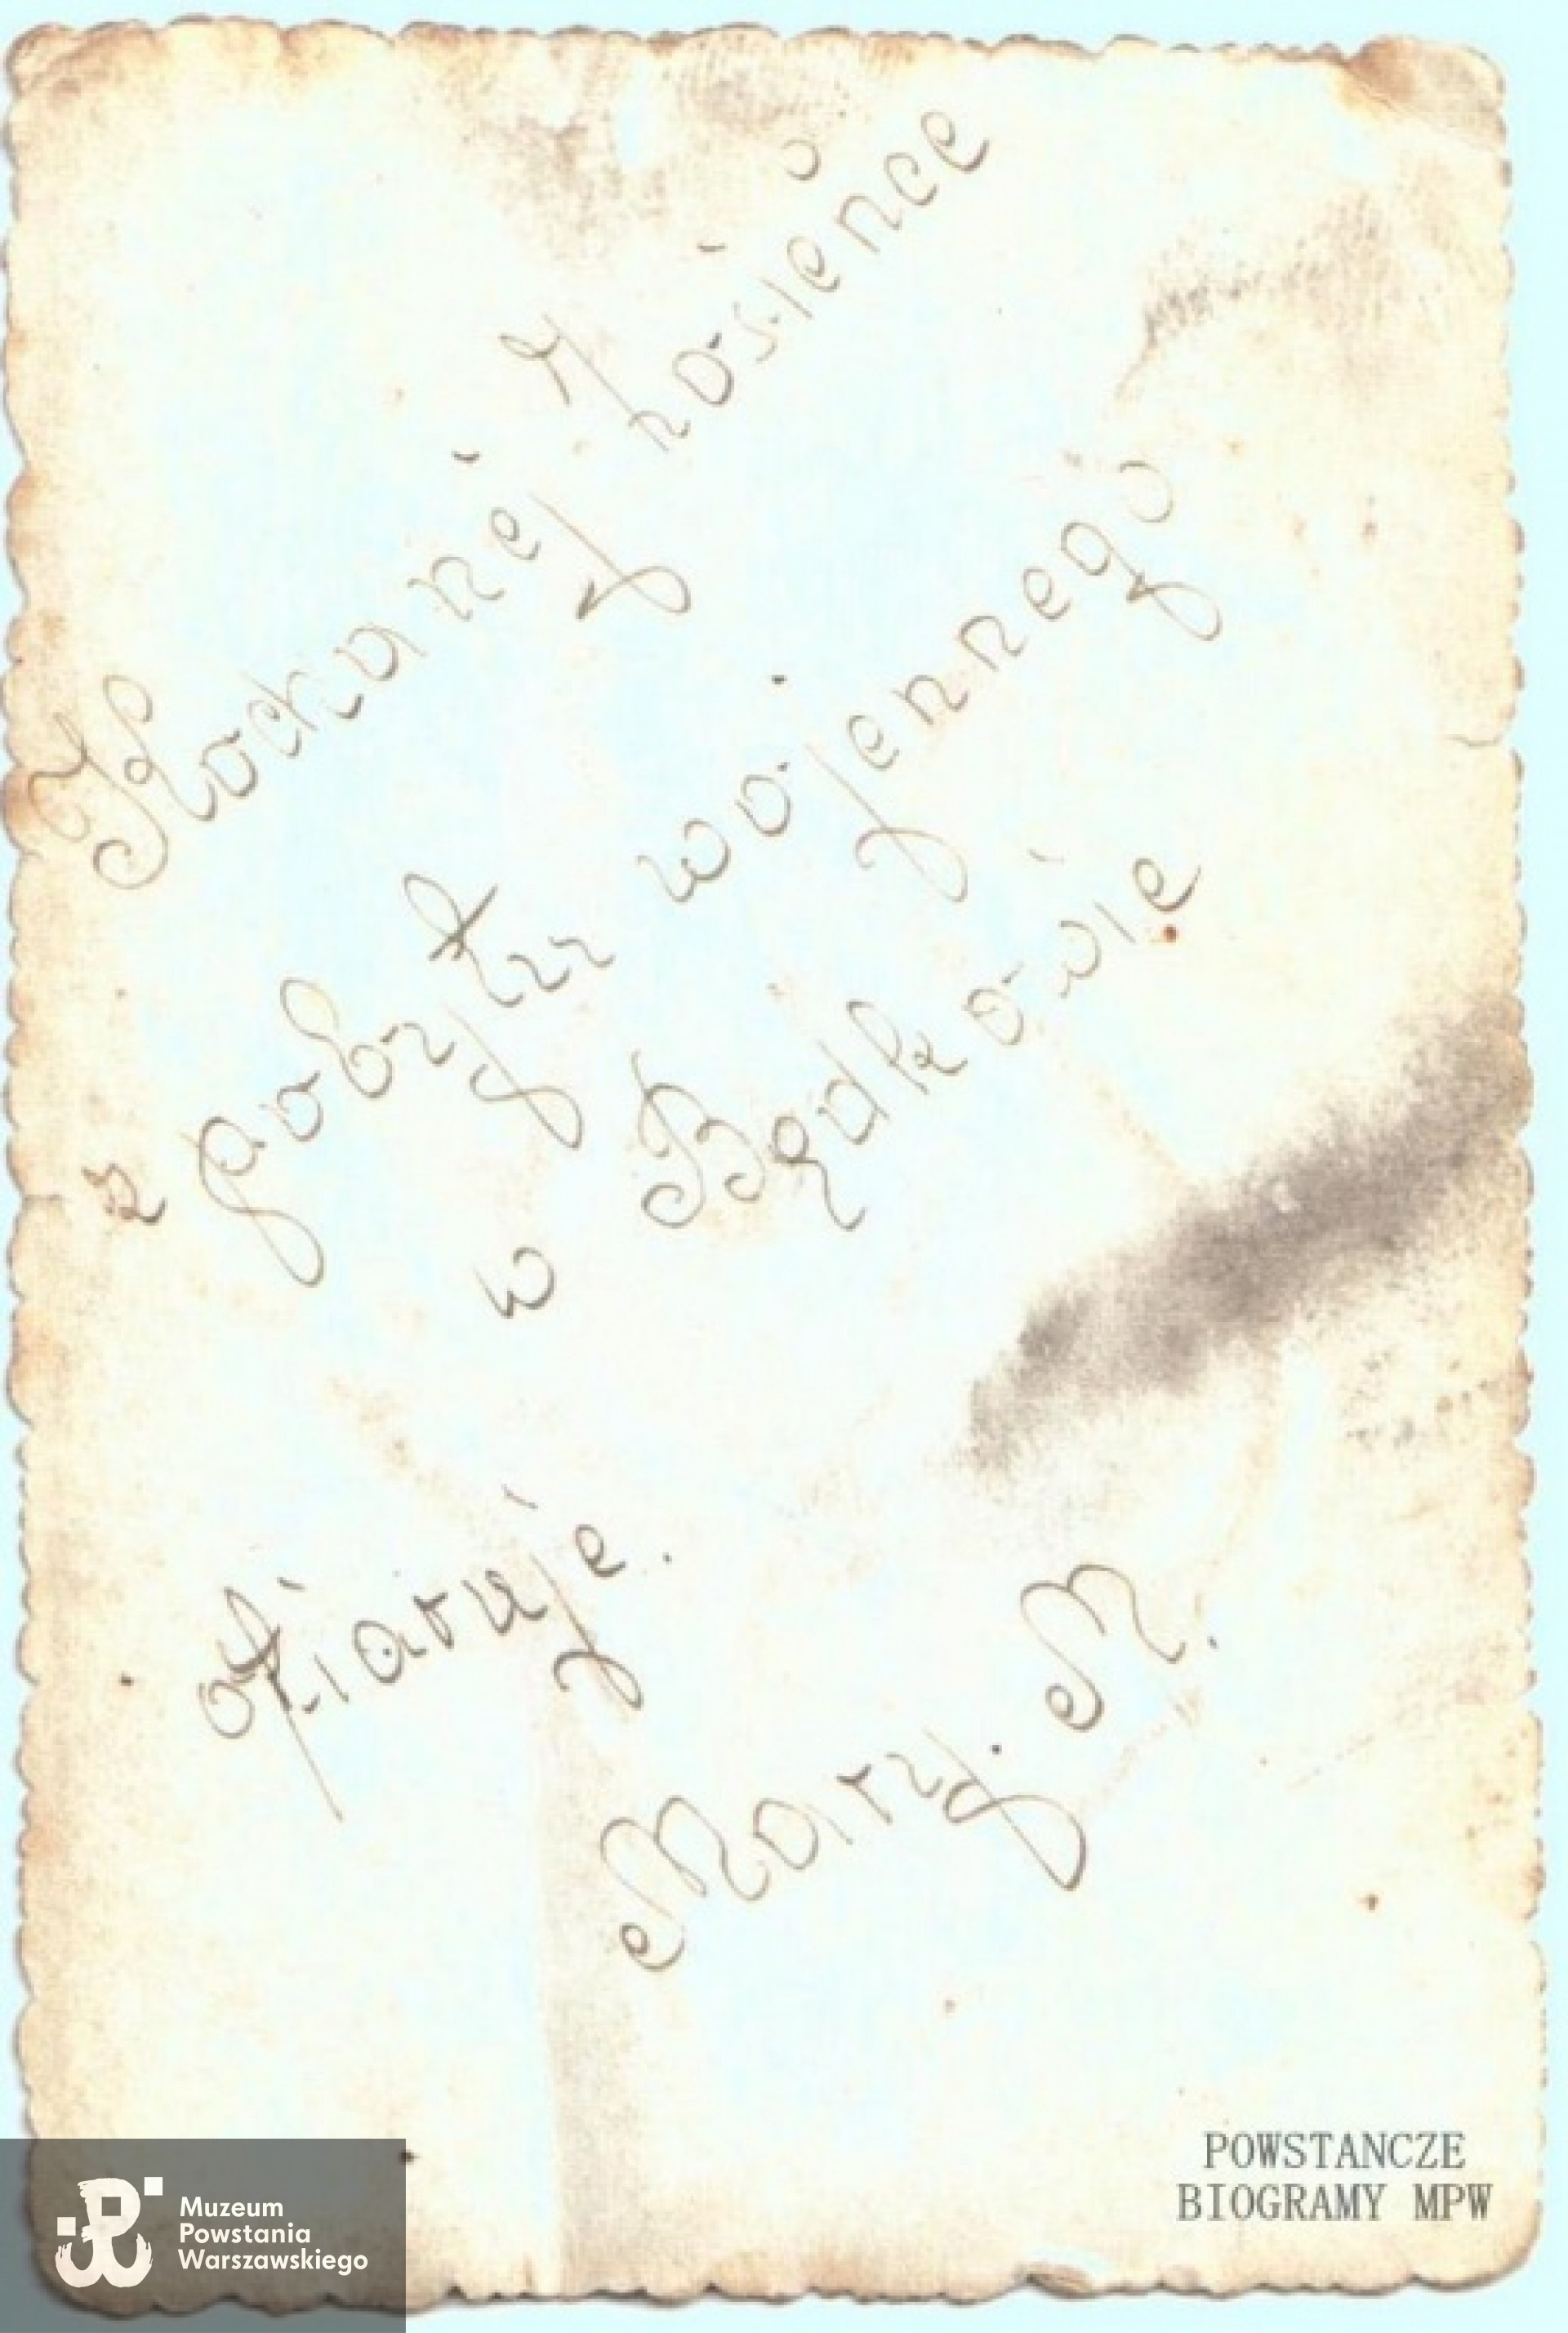 Kochanej Zosieńce
z pobytu wojennego
w Będkowie
ofiaruje.
Mary. M.
POWSTANCZE
BIOGRAMY MPW
Muzeum
Powstania
Warszawskiego